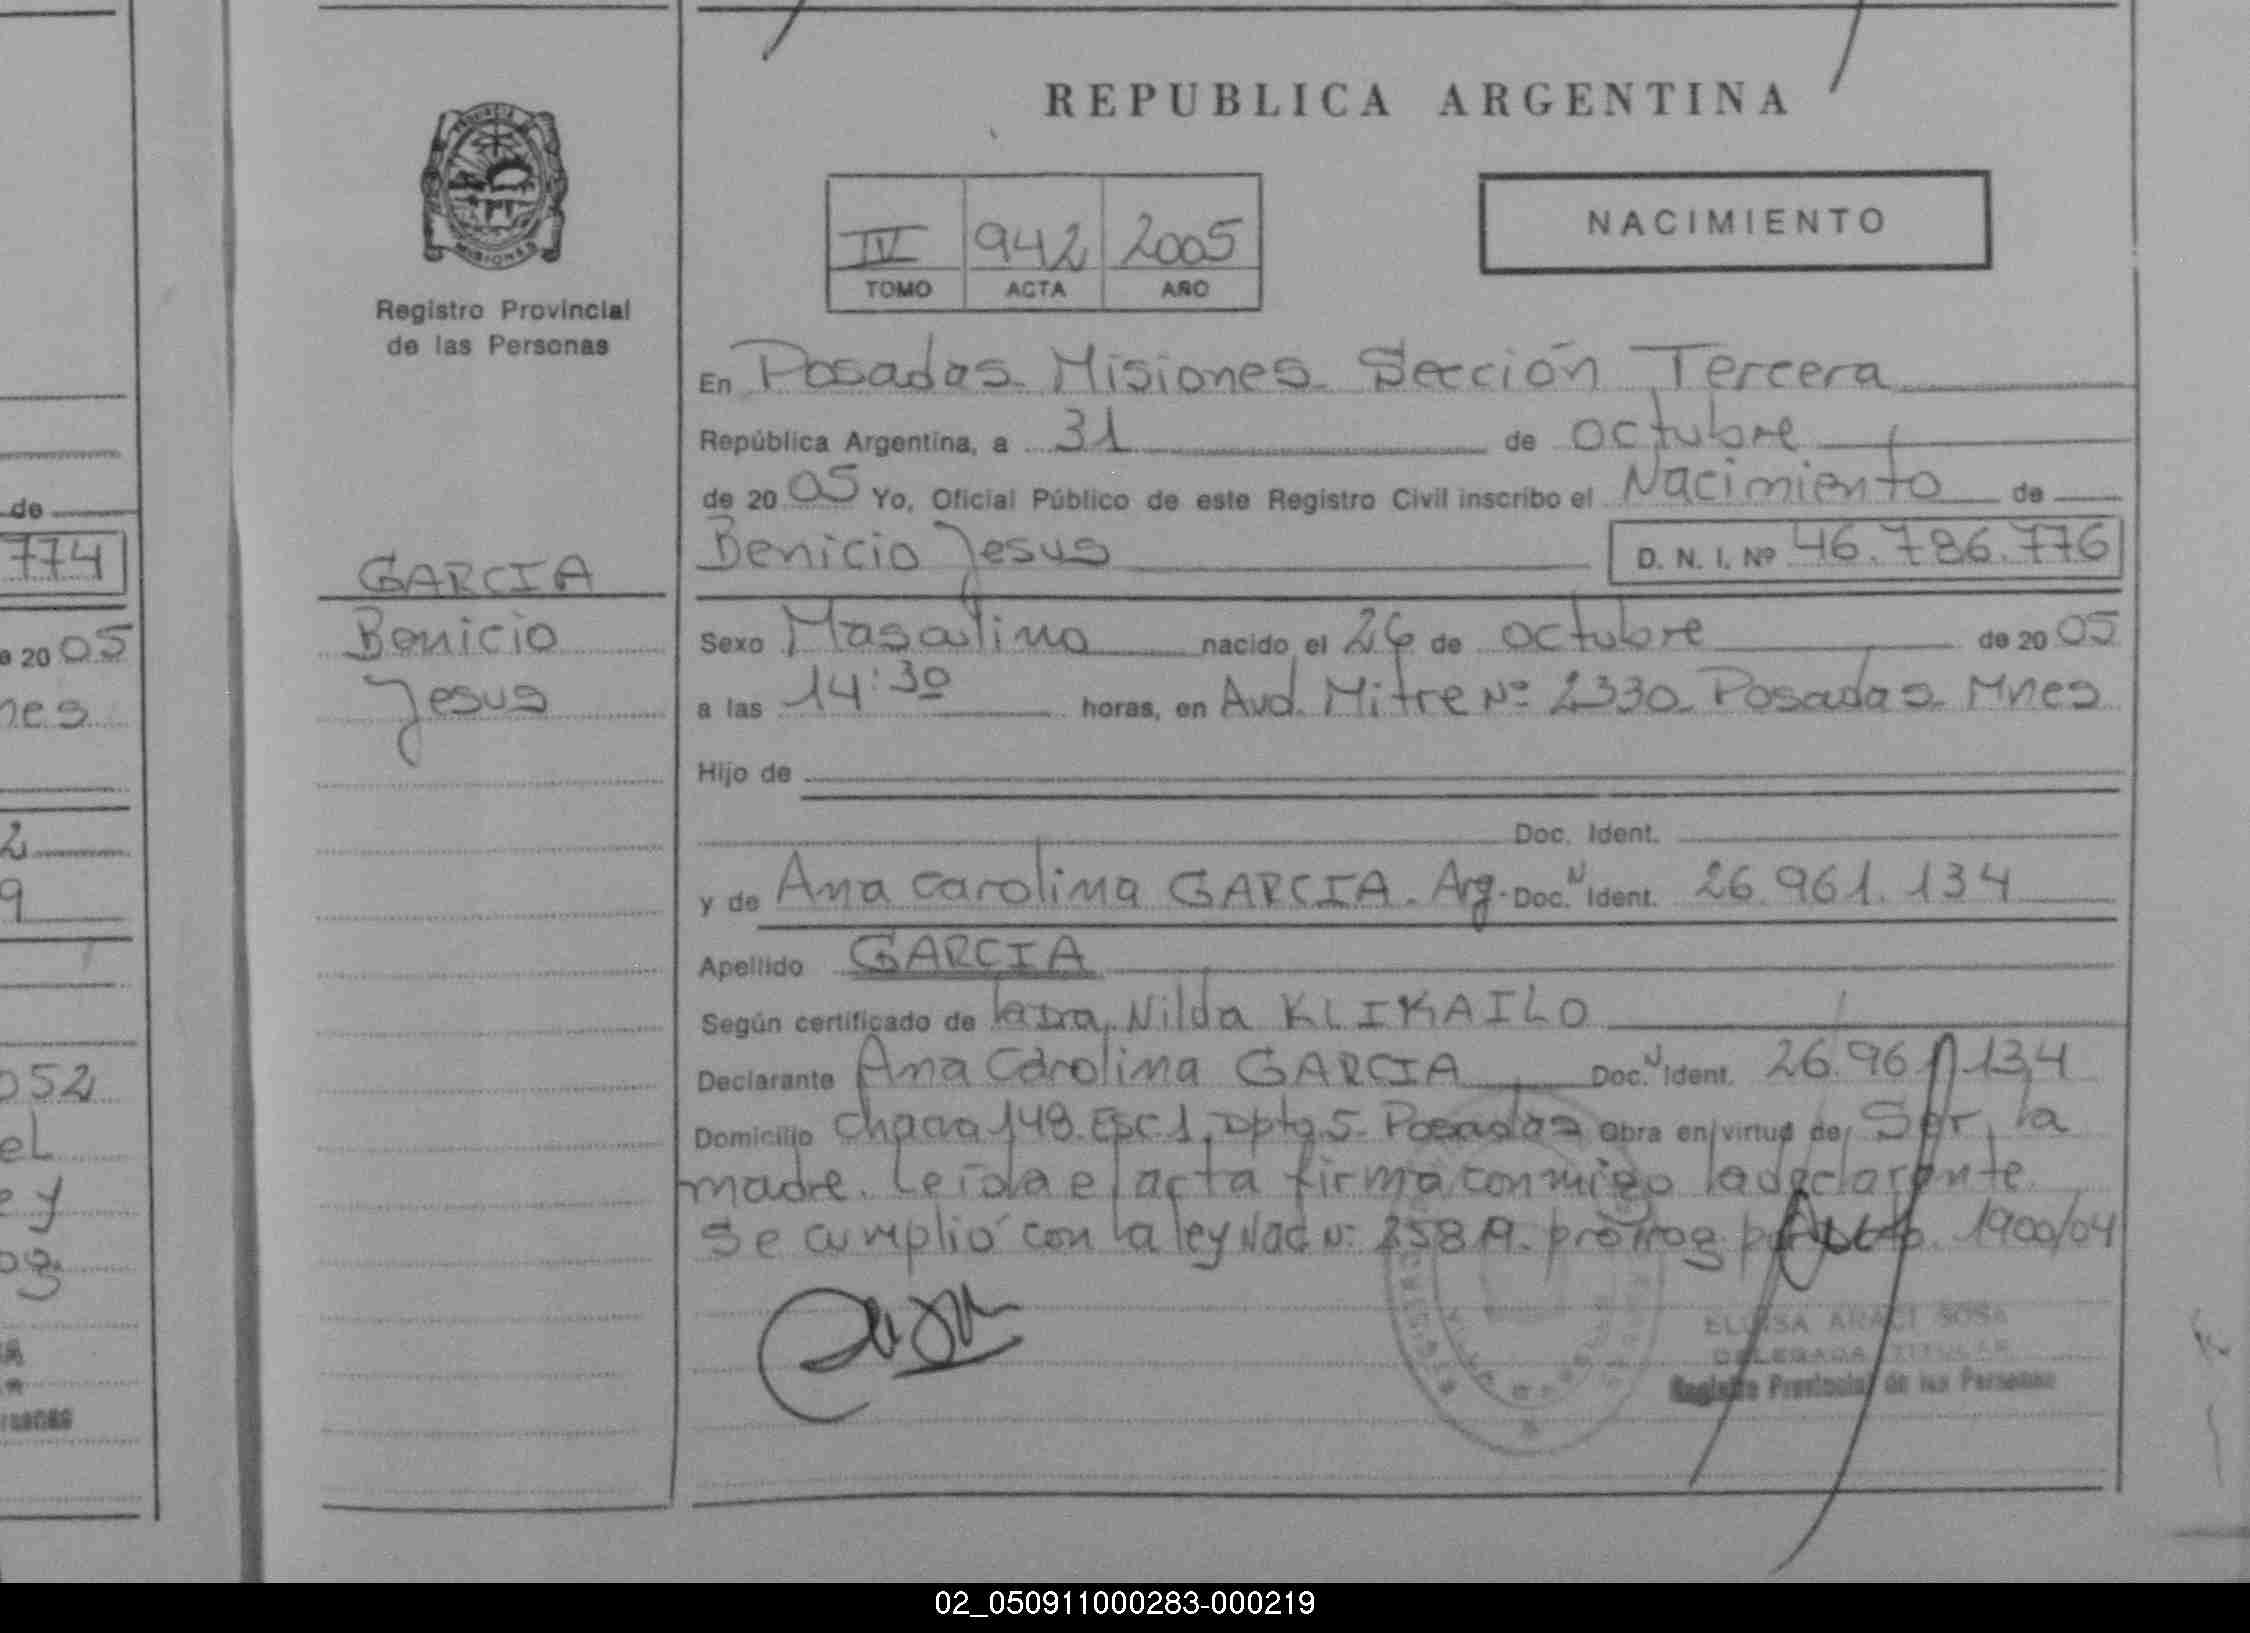 REPUBLICA ARGENTINA
PROVINCIA DE
MISIONES
Registro Provincial
de las Personas
IV 942 2005
TOMO ACTA AÑO
NACIMIENTO
En Posadas Misiones Sección Tercera
República Argentina, a 31 de octubre
de 20 05 Yo, Oficial Público de este Registro Civil inscribo el Nacimiento de
Benicio Jesus D. N. I. Nº 46.786.776
GARCIA
Benicio
Jesus
Sexo Masculino nacido el 26 de octubre de 20 05
a las 14:30 horas, en Avd. Mitre Nº 2330 Posadas Mnes
Hijo de
Doc. Ident.
y de Ana Carolina GARCIA. Arg. Doc. N Ident. 26.961.134
Apellido GARCIA
Según certificado de la Dra. Nilda KLIKAILO
Declarante Ana Carolina GARCIA Doc. N Ident. 26.961.134
Domicilio Chacra 148. Esc 1, Dpto 5. Posadas Obra en virtud de Ser la
madre. Leida el acta firma conmigo la declarante.
Se cumplió con la ley Nac Nº 25819. prorrog. por Dcto. 1900/04
ELOISA ARACI SOSA
DELEGADA TITULAR
Registro Provincial de las Personas
de
774
20 05
nes
2
9
052
el
e y
og.
02_050911000283-000219